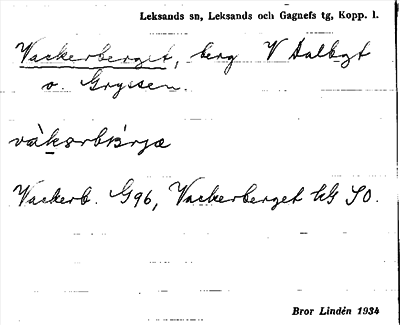 Leksands sn, Leksands och Gagnefs tg, Kopp. l.
Vackerberget, berg V Dalbyt
o. Grycken.
Vackerb. G96, Vackerberget hG SO.
Bror Lindén 1934